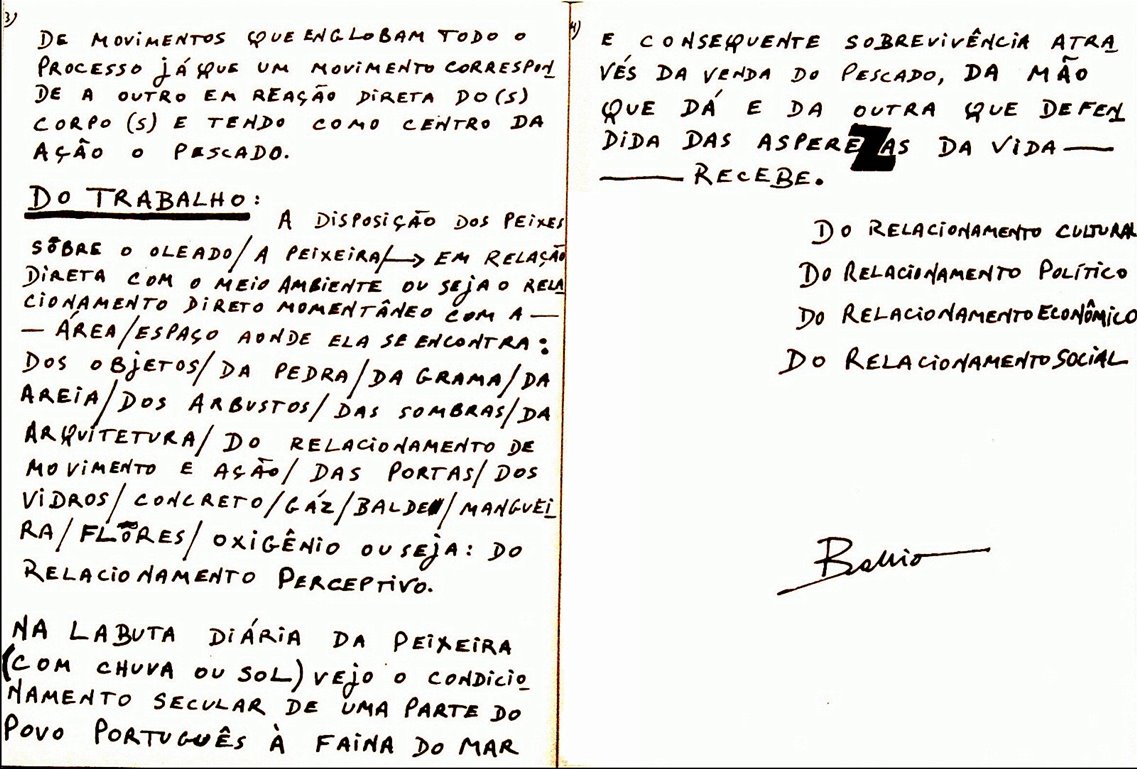 3)
DE MOVIMENTOS QUE ENGLOBAM TODO O
PROCESSO JÁ QUE UM MOVIMENTO CORRESPON
DE A OUTRO EM REAÇÃO DIRETA DO(S)
CORPO(S) E TENDO COMO CENTRO DA
AÇÃO O PESCADO.
DO TRABALHO:
A DISPOSIÇÃO DOS PEIXES
SÔBRE O OLEADO/A PEIXEIRA/→ EM RELAÇÃO
DIRETA COM O MEIO AMBIENTE OU SEJA O RELA
CIONAMENTO DIRETO MOMENTÂNEO COM A —
— ÁREA/ESPAÇO AONDE ELA SE ENCONTRA:
DOS OBJETOS/DA PEDRA/DA GRAMA/DA
AREIA/DOS ARBUSTOS/DAS SOMBRAS/DA
ARQUITETURA/DO RELACIONAMENTO DE
MOVIMENTO E AÇÃO/DAS PORTAS/DOS
VIDROS/CONCRETO/GÁZ/BALDE/MANGUEI
RA/FLÔRES/OXIGÊNIO OU SEJA: DO
RELACIONAMENTO PERCEPTIVO.
NA LABUTA DIÁRIA DA PEIXEIRA
(COM CHUVA OU SOL) VEJO O CONDICIO
NAMENTO SECULAR DE UMA PARTE DO
POVO PORTUGUÊS À FAINA DO MAR
4)
E CONSEQUENTE SOBREVIVÊNCIA ATRA
VÉS DA VENDA DO PESCADO, DA MÃO
QUE DÁ E DA OUTRA QUE DEFEN
DIDA DAS ASPEREZAS DA VIDA —
— RECEBE.
DO RELACIONAMENTO CULTURAL
DO RELACIONAMENTO POLÍTICO
DO RELACIONAMENTO ECONÔMICO
DO RELACIONAMENTO SOCIAL